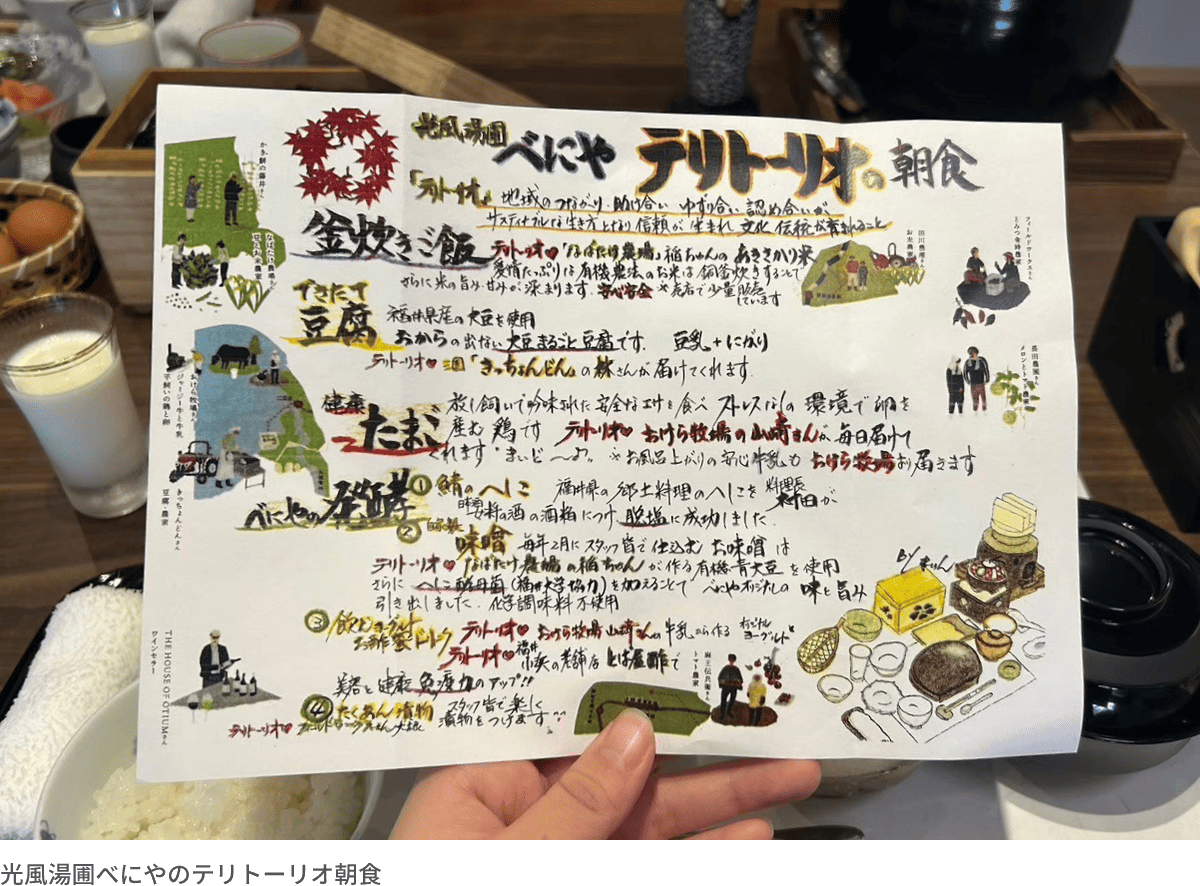 光風湯圃 べにや テリトーリオの朝食
「テリトーリオ」 地域のつながり 助け合い ゆずり合い 認め合いが
サスティナブルな生き方となり 信頼が生まれ 文化 伝統が育まれること
釜炊きご飯
テリトーリオ♥「なばたけ農場」稲ちゃんの あきさかり米
愛情たっぷりな有機農法のお米は 釜炊きすることで
さらに米の旨み甘みが、深まります。安心安全 ※売店で少量販売しています
できたて豆腐
福井県産の大豆を使用
おからの出ない 大豆まるごと豆腐です. 豆乳+にがり
テリトーリオ♥ 三国「きっちょんどん」の 林さんが届けてくれます.
健康たまご
放し飼いで 吟味された 安全なエサを食べ ストレスなしの 環境で 卵を
産む 鶏です テリトーリオ♥ おけら牧場の山崎さんが 毎日届けて
くれます ※お風呂上がりの安心牛乳も おけら牧場より届きます
べにやの発酵
① 鯖のへしこ 福井県の郷土料理のへしこを 料理長 村田が
酒の酒粕につけ 脱塩に成功しました.
② 自家製味噌 毎年2月に スタッフ皆で 仕込む お味噌は
テリトーリオ♥ なばたけ農場の稲ちゃんが作る 有機青大豆を使用
さらに へしこ酵母菌(福井大学協力)を加えることで べにやオリジナルの 味と旨み
引き出しました. 化学調味料不使用
③ 飲むヨーグルト お酢ドリンク
テリトーリオ♥ おけら牧場 山崎さんの牛乳から作る オリジナルヨーグルトと
テリトーリオ♥ 福井小浜の老舗店 とば屋酢で
美容と健康 免疫力のアップ!!
④ たくあん漬物 スタッフ皆で楽しく
漬物をつけます
テリトーリオ♥ フィールドワークスさん 大根
かき餅の藤井さん
なばたけ農家
おけら牧場さん
ジャージー牛と牛乳
平飼いの鶏と卵
きっちょんどんさん
豆腐・農家
THE HOUSE OF OTIUMさん
ワインセラー
田川農産さん
お米農家
フィールドワークスさん
とみつ金時農家
長田農園さん
メロンとトマト農家
麻王伝兵衛さん
トマト農家
光風湯圃べにやのテリトーリオ朝食